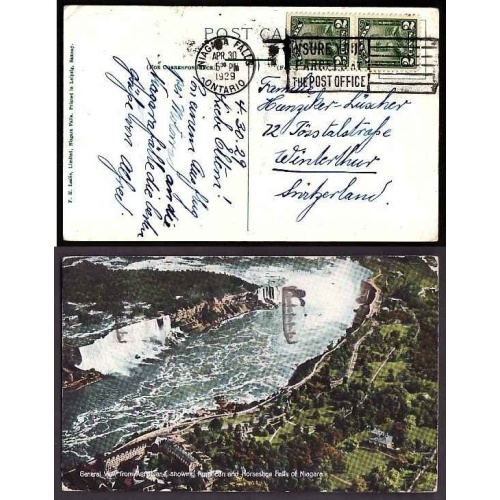 POST CARD
(FOR CORRESPONDENCE)
NIAGARA FALLS
APR 30
5 PM
1929
ONTARIO
INSURE YOUR
PARCELS AT
THE POST OFFICE
2 2
4.30.29
Liebe Eltern!
von einem Ausflug
an die
Niagarafälle die besten
Grüße von Alfred.
Familie
72 Tösstalstraße
Winterthur
Switzerland.
F. H. Leslie, Limited, Niagara Falls. Printed in Leipzig, Saxony.
General View from Aeroplane, showing American and Horseshoe Falls of Niagara